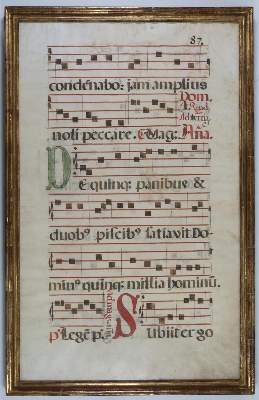 87.
condēnabo: jam amplius
Dom.
noli peccare. Mag: Aña.
De quinq; panibus &
duobꝰ piscibꝰ satiavit Do-
minꝰ quinq; millia hominū.
pꝰ Legē pꝰ. Subiit ergo